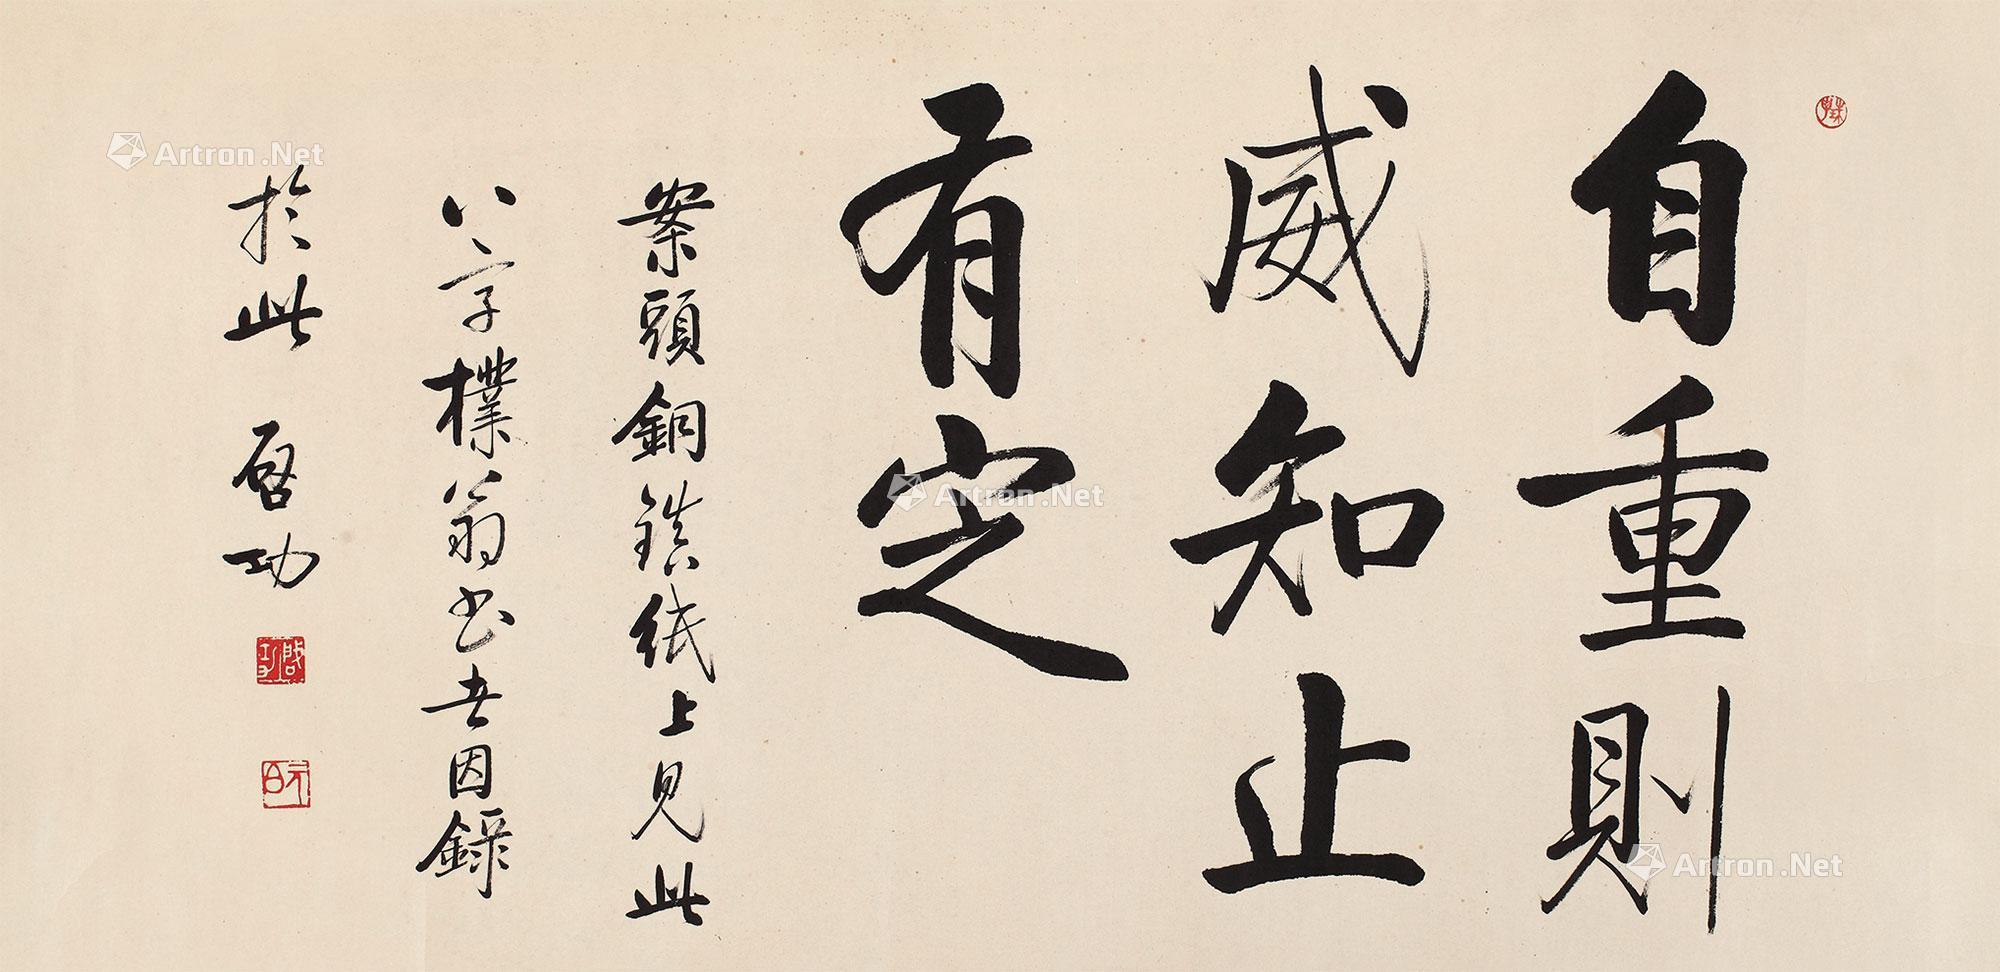 自重則
威知止
有定
案頭銅鎮紙上見此
八字樸翁書者因錄
於此 啓功
啓功
元白
Artron.Net
Artron.Net
Artron.Net